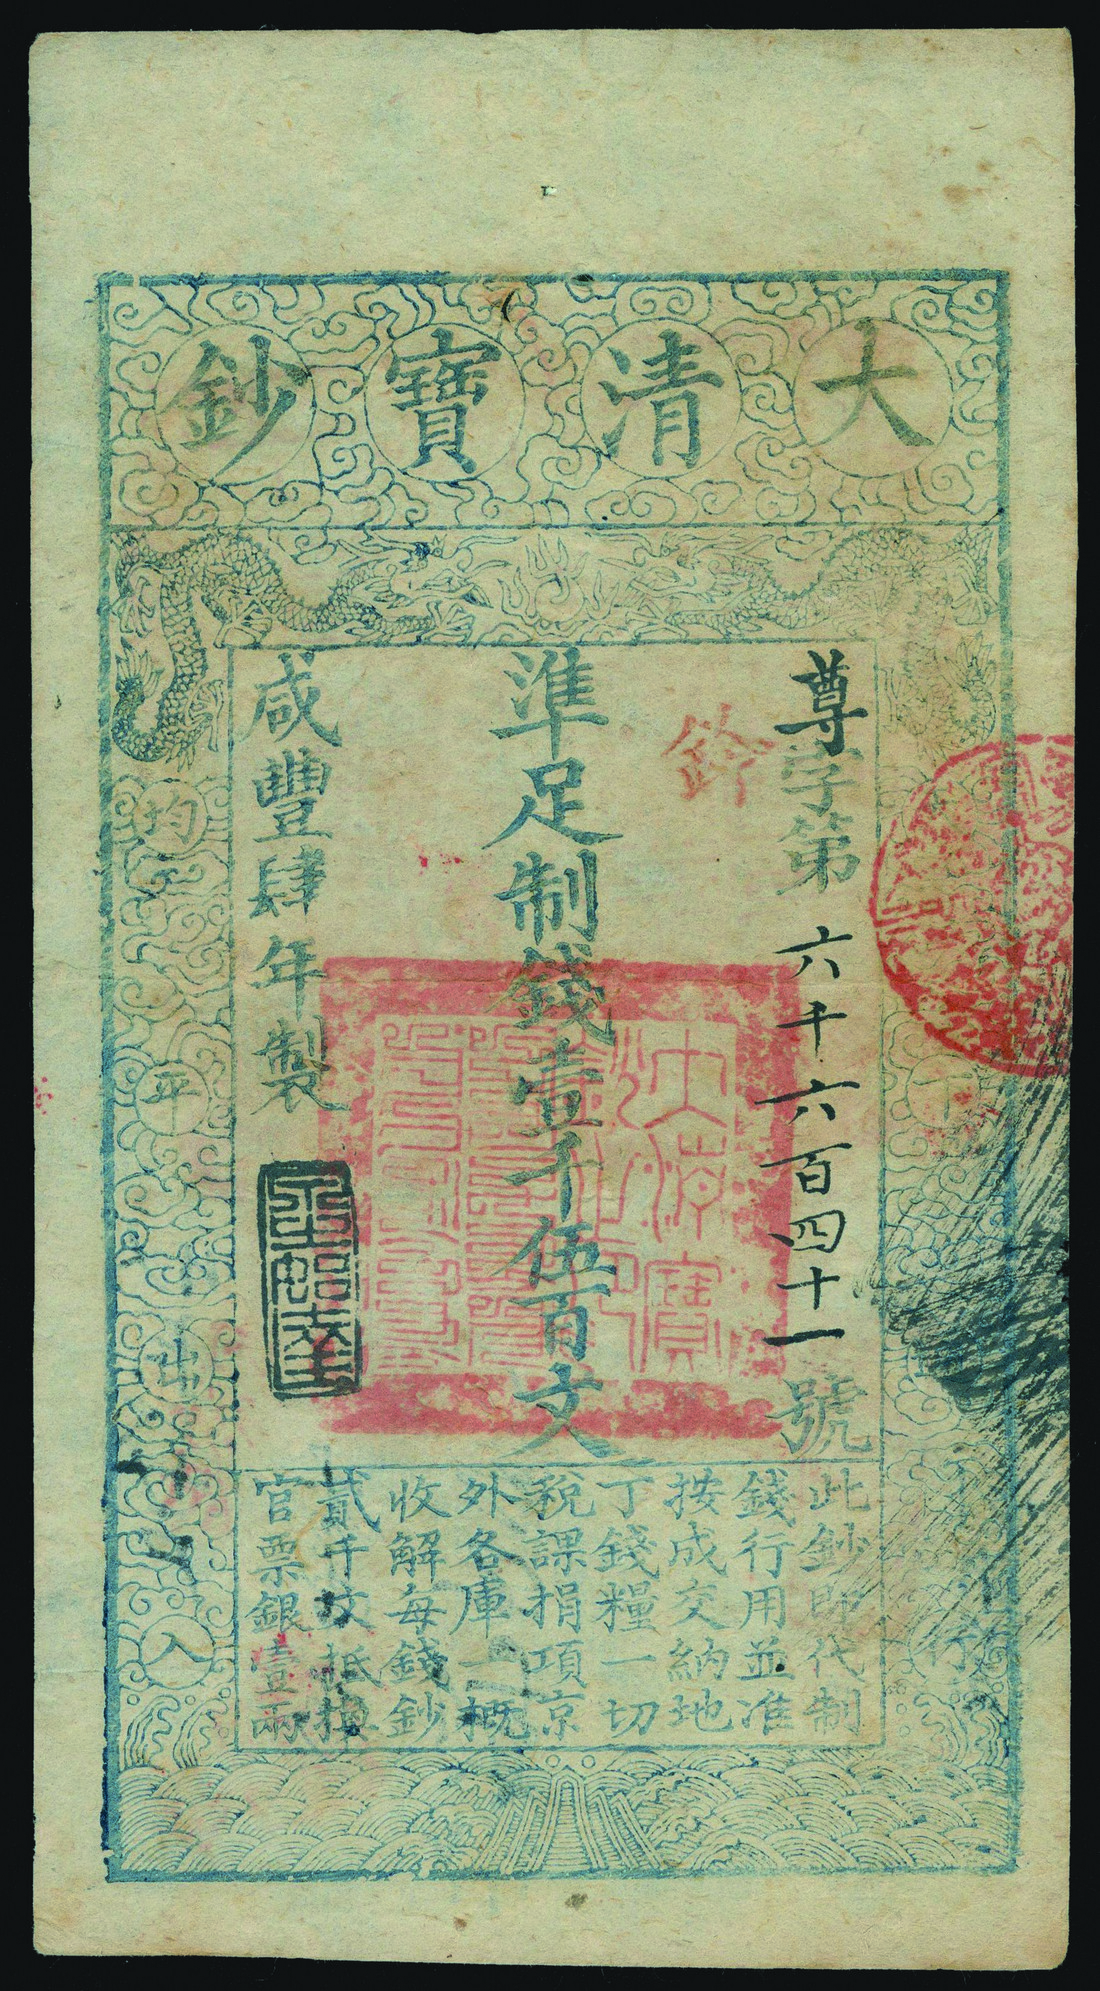 大清寶鈔
尊字第六千六百四十一號
鈴
準足制錢壹千伍百文
咸豐肆年製
此鈔即代制
錢行用並准
按成交納地
丁錢糧一切
稅課捐項京
外各庫一概
收解每錢鈔
貳千文抵換
官票銀壹兩
天下
均平出入